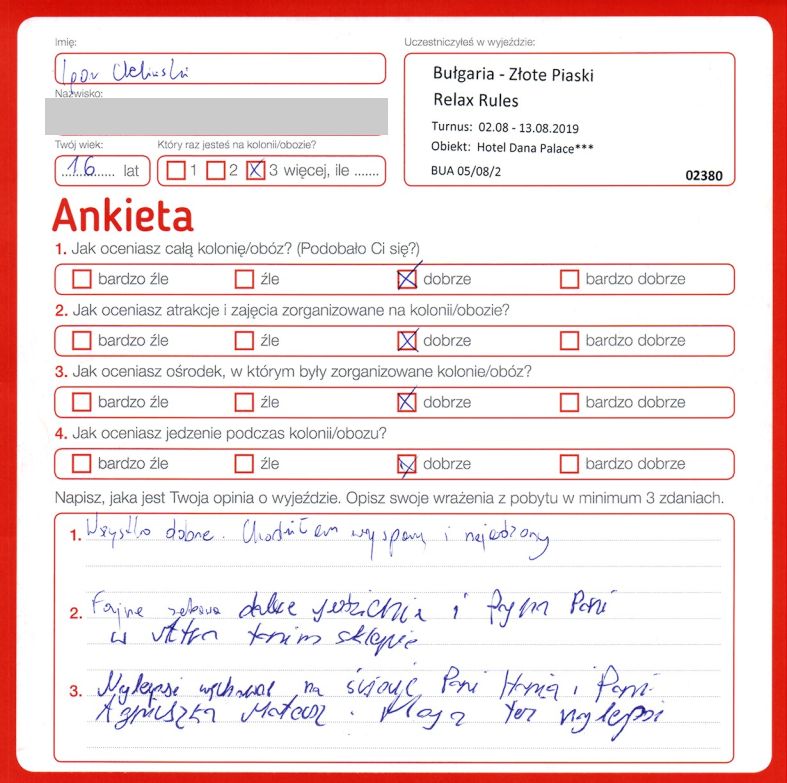 Imię:
Uczestniczyłeś w wyjeździe:
Igor
Bułgaria - Złote Piaski
Nazwisko:
Relax Rules
Turnus: 02.08 - 13.08.2019
Twój wiek:
Który raz jesteś na kolonii/obozie?
Obiekt: Hotel Dana Palace***
16 lat
1 2 3 więcej, ile .......
BUA 05/08/2
02380
Ankieta
1. Jak oceniasz całą kolonię/obóz? (Podobało Ci się?)
bardzo źle źle dobrze bardzo dobrze
2. Jak oceniasz atrakcje i zajęcia zorganizowane na kolonii/obozie?
bardzo źle źle dobrze bardzo dobrze
3. Jak oceniasz ośrodek, w którym były zorganizowane kolonie/obóz?
bardzo źle źle dobrze bardzo dobrze
4. Jak oceniasz jedzenie podczas kolonii/obozu?
bardzo źle źle dobrze bardzo dobrze
Napisz, jaka jest Twoja opinia o wyjeździe. Opisz swoje wrażenia z pobytu w minimum 3 zdaniach.
1. Wszystko dobre. Chodziłem wyspany i najedzony
2. Fajne i Pani
w sklepie
3. Najlepsi na Pani Hania i Pani
Agnieszka Mateusz. Plaża też najlepsi